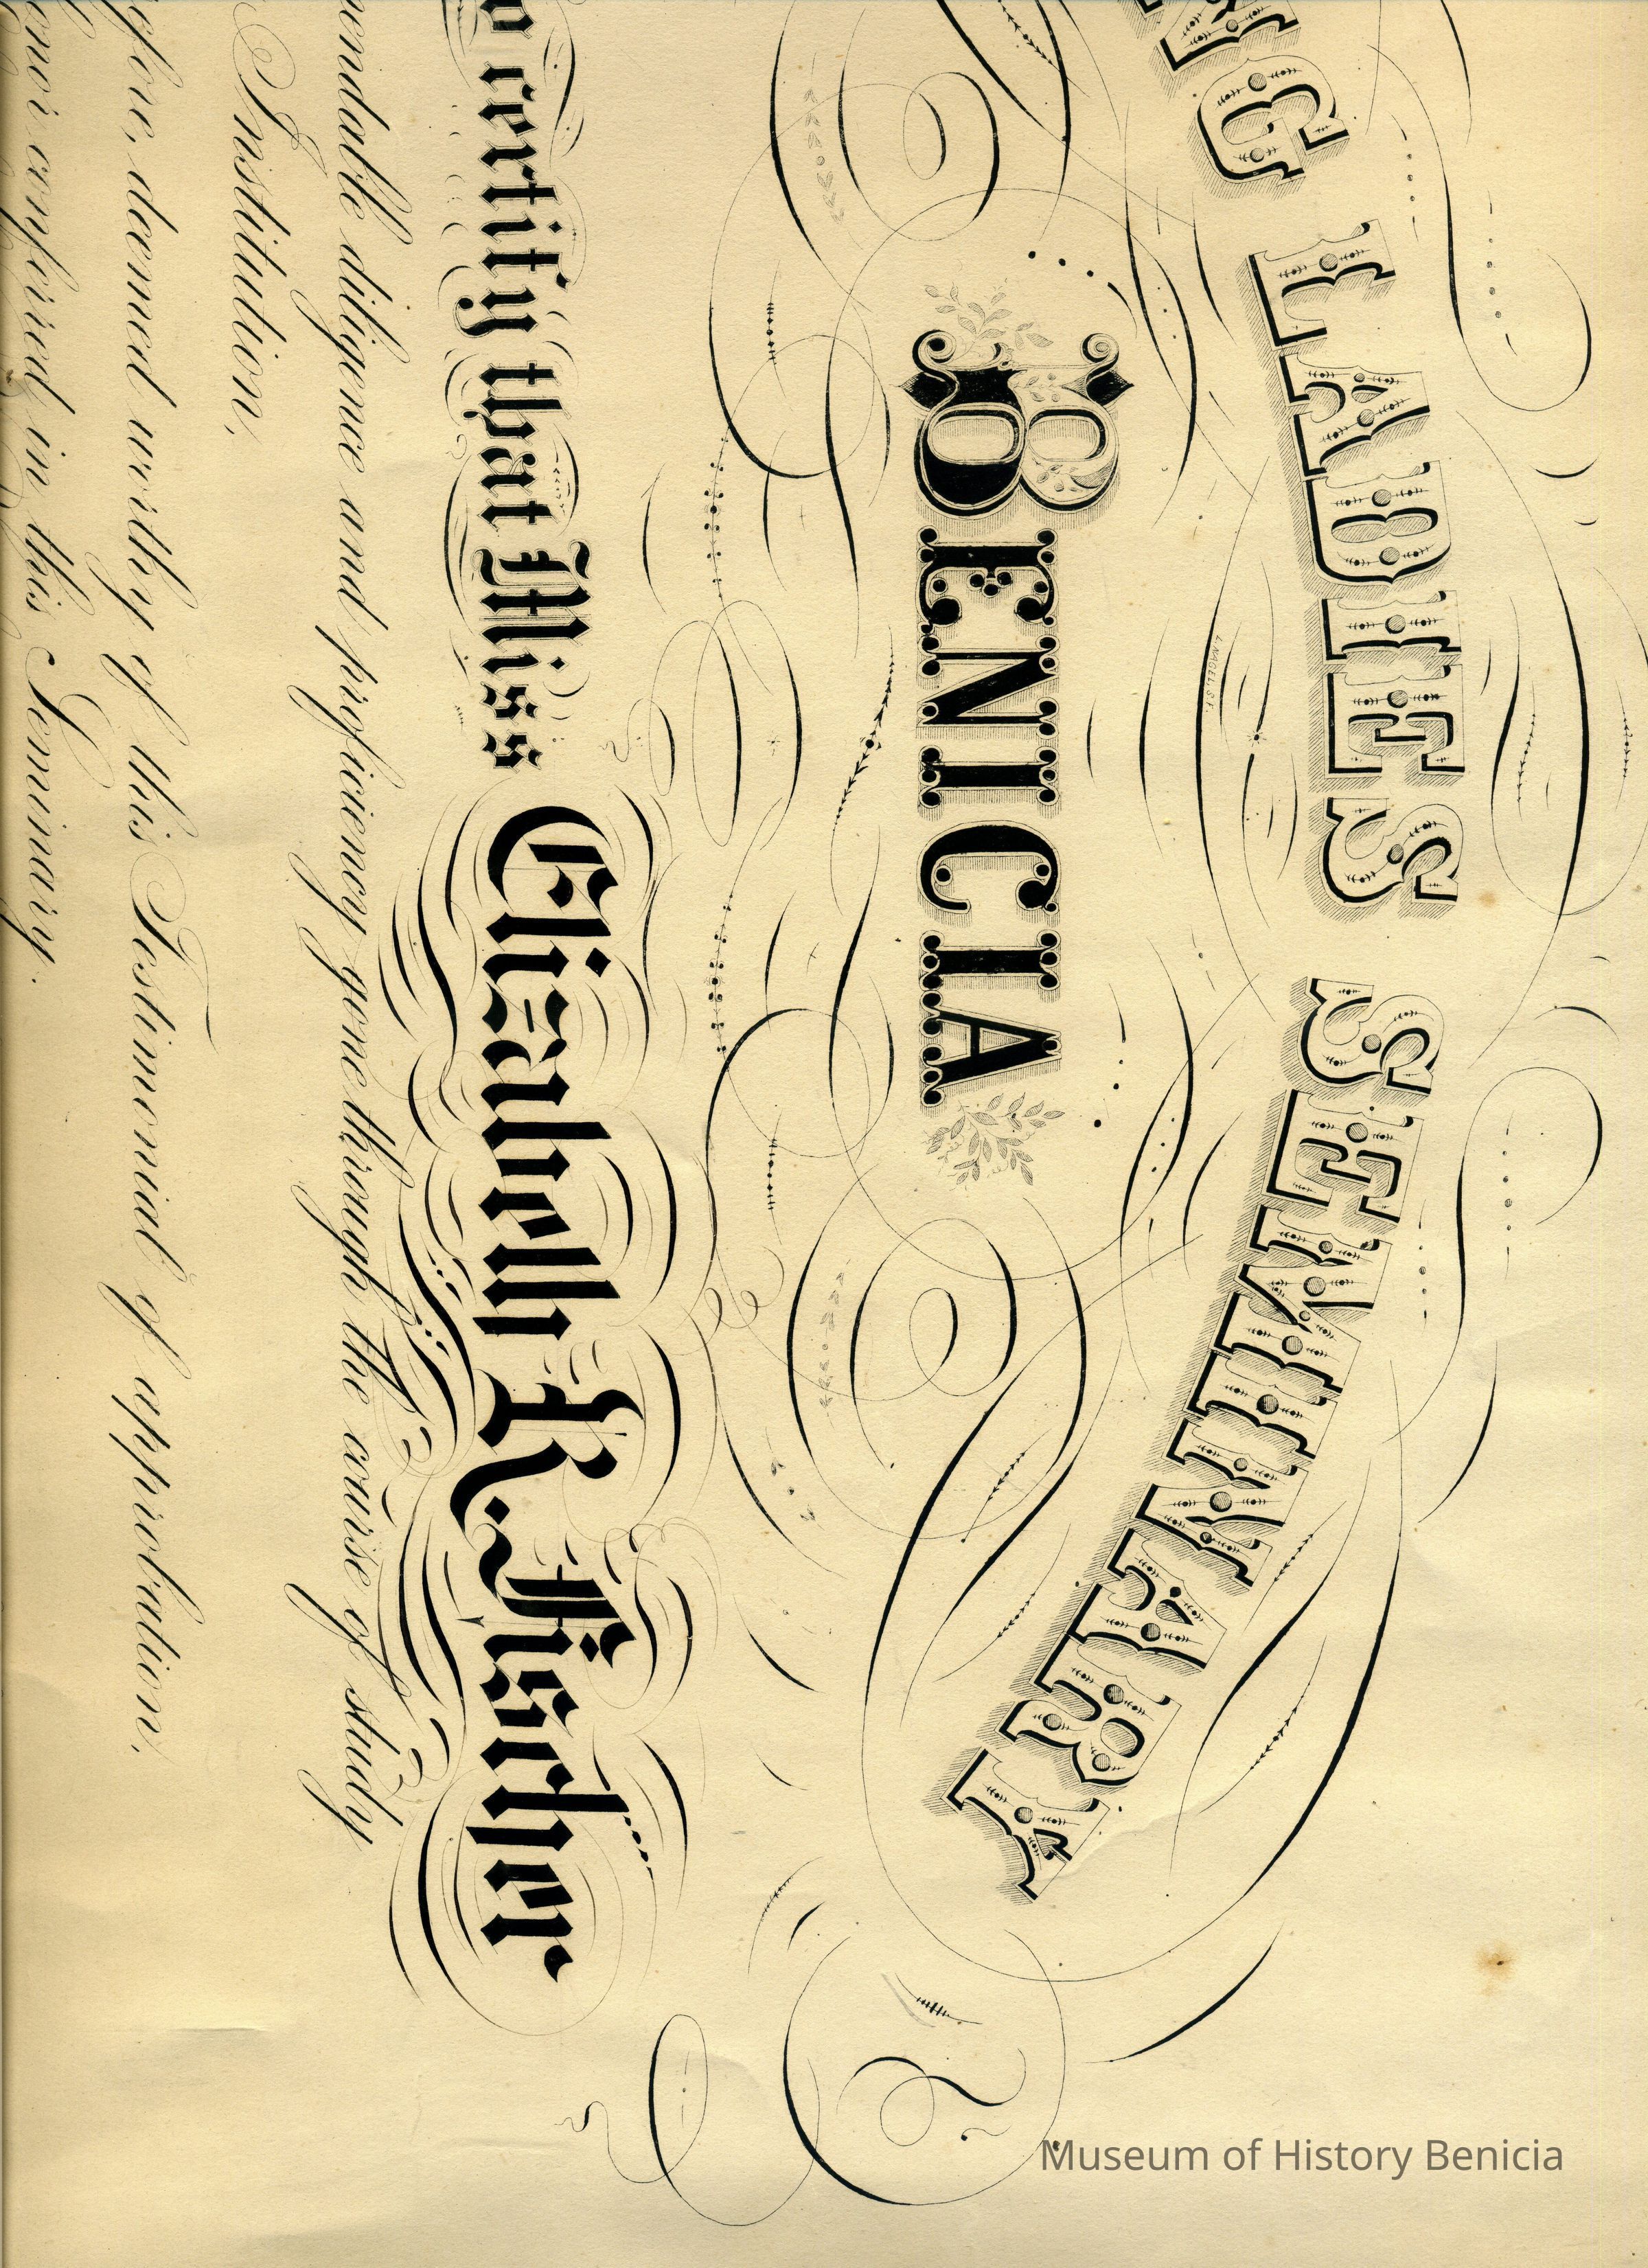 NG LADIES SEMINARY
BENICIA
o certify that Miss Elizabeth R. Fischer
endable diligence and proficiency gone through the course of study
Institution,
efore, deemed worthy of this Testimonial of approbation,
onor conferred in this Seminary.
Museum of History Benicia